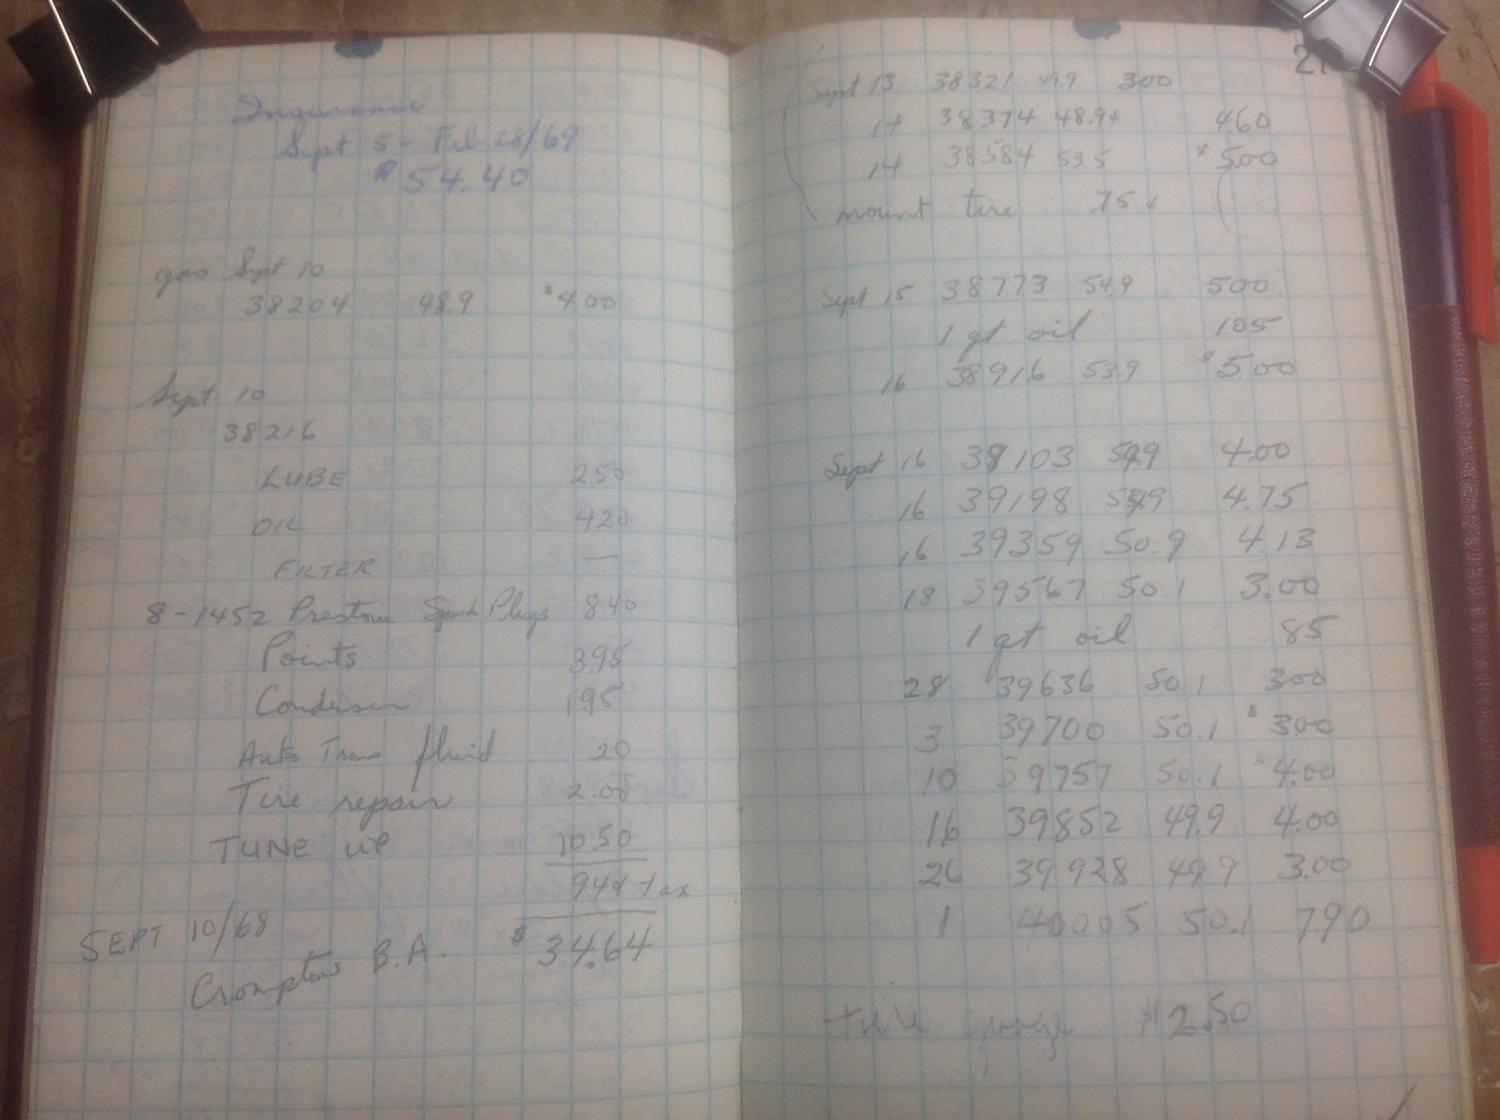 Insurance
Sept 5 - Feb 28/69
$54.40
gas Sept 10
38204 48.9 $400
Sept 10
38216
LUBE 250
OIL 420
FILTER —
8-1452 Prestone Spark Plugs 840
Points 395
Condenser 195
Auto Trans fluid 20
Tire repair 2.00
TUNE UP 10.50
94¢ tax
SEPT 10/68 $34.64
Cromptons B.A.
21
Sept 13 38321 49.9 300
14 38374 48.9¢ 460
14 38584 53.5 $500
mount tire .75¢
Sept 15 38773 549 500
1 qt oil 105
16 38916 539 $500
Sept 16 39103 549 4.00
16 39198 549 4.75
16 39359 50.9 4.13
18 39567 50.1 3.00
1 qt oil 85
28 39636 50.1 300
3 39700 50.1 $300
10 39757 50.1 $4.00
16 39852 49.9 4.00
26 39928 499 3.00
1 40005 50.1 790
$2.50